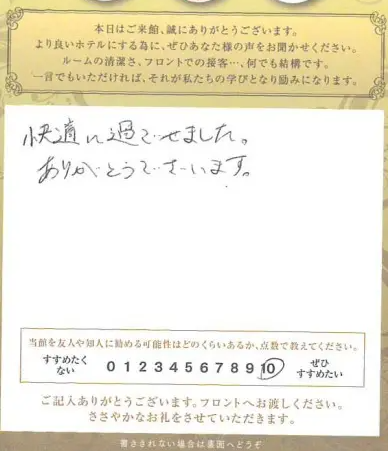 本日はご来館、誠にありがとうございます。
より良いホテルにする為に、ぜひあなた様の声をお聞かせください。
ルームの清潔さ、フロントでの接客…、何でも結構です。
一言でもいただければ、それが私たちの学びとなり励みになります。
快適に過ごせました。
ありがとうございます。
当館を友人や知人に勧める可能性はどのくらいあるか、点数で教えてください。
すすめたくない 0 1 2 3 4 5 6 7 8 9 10 ぜひすすめたい
ご記入ありがとうございます。フロントへお渡しください。
ささやかなお礼をさせていただきます。
書ききれない場合は裏面へどうぞ